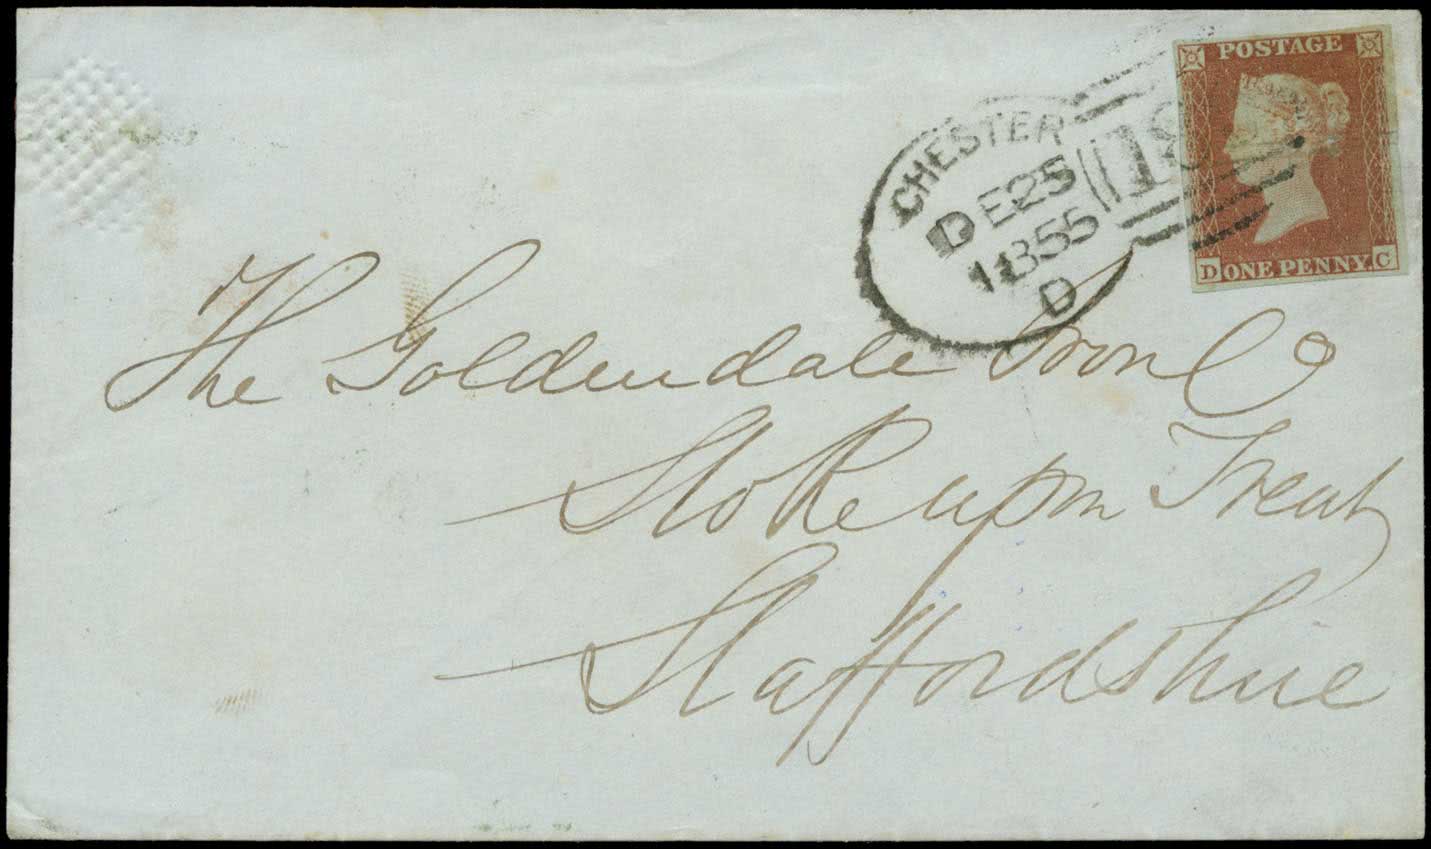 POSTAGE
D ONE PENNY. C
CHESTER
DE 25
1855
D
The Goldendale Iron Co
Stoke upon Trent
Staffordshire